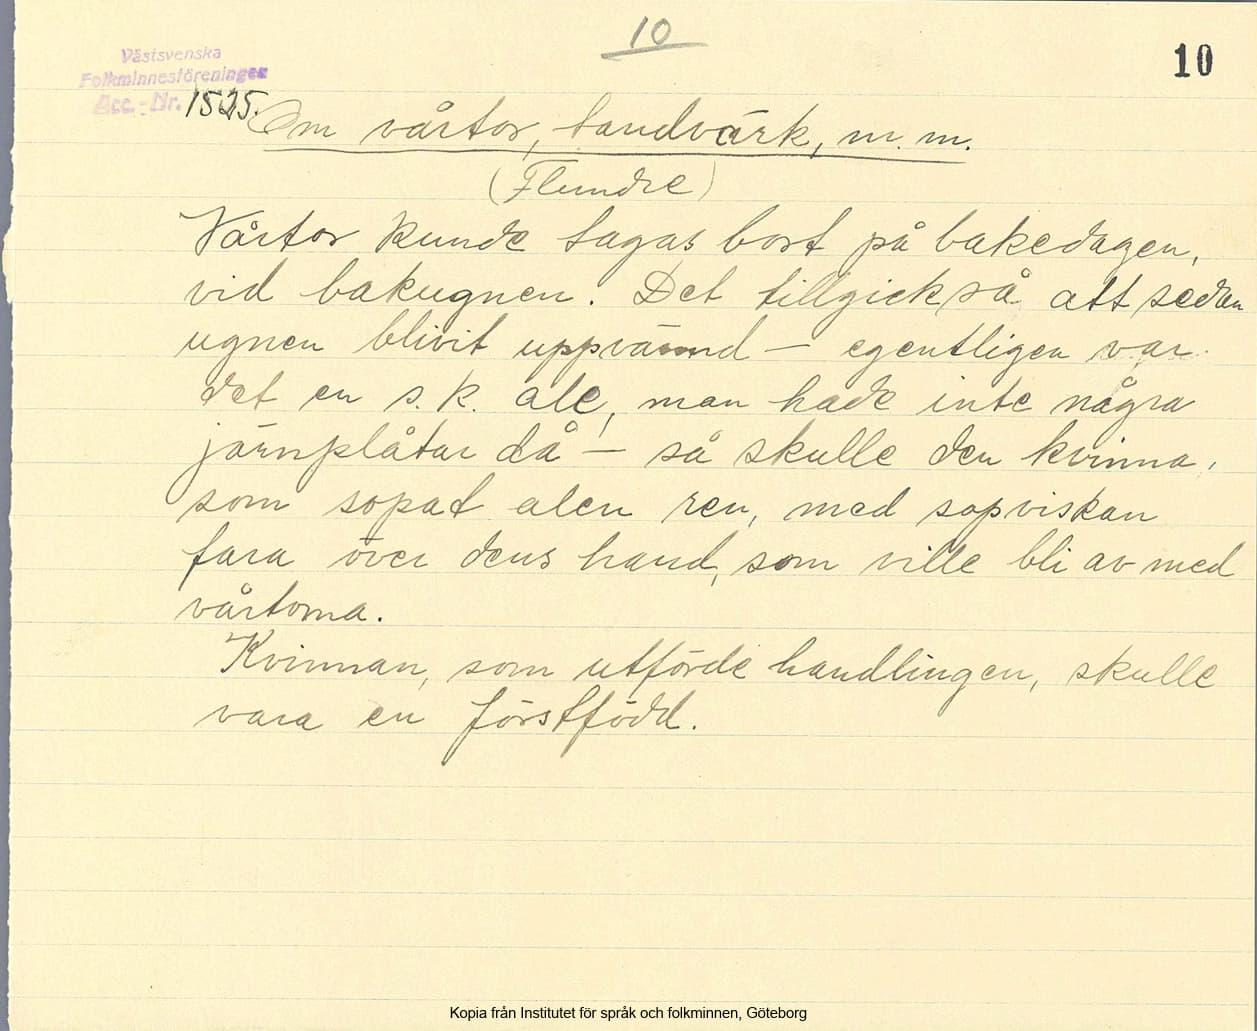 10
10
Västsvenska
Folkminnesföreningen
Acc.-Nr. 1525.
Om vårtor, tandvärk, m. m.
(Flundre)
Vårtor kunde tagas bort på bakedagen,
vid bakugnen. Det tillgick så att sedan
ugnen blivit uppvärmd – egentligen var
det en s. k. ale, man hade inte några
järnplåtar då – så skulle den kvinna,
som sopat alen ren, med sopviskan
fara över dens hand, som ville bli av med
vårtorna.
Kvinnan, som utförde handlingen, skulle
vara en förstfödd.
Kopia från Institutet för språk och folkminnen, Göteborg